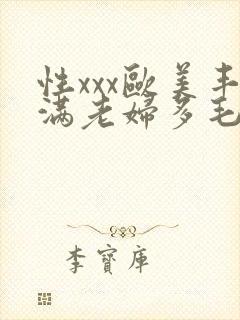 性xxx歐美丰
满老婦多毛
李寶庫